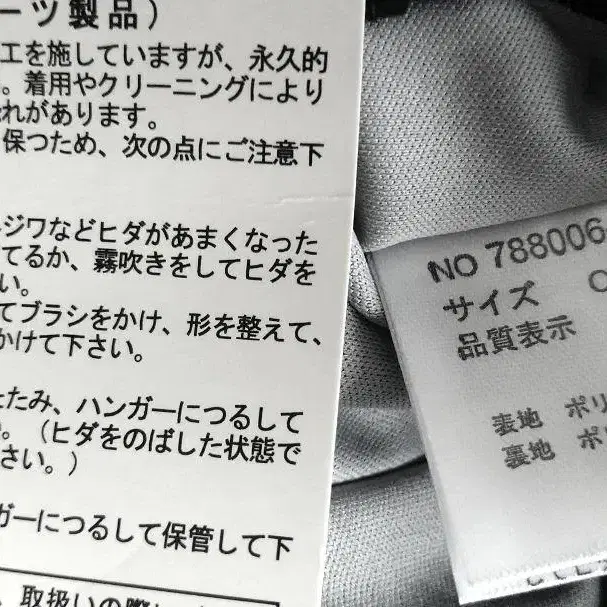 ーツ製品）
工を施していますが、永久的
。着用やクリーニングにより
れがあります。
保つため、次の点にご注意下
ジワなどヒダがあまくなった
てるか、霧吹きをしてヒダを
い。
てブラシをかけ、形を整えて、
かけて下さい。
たたみ、ハンガーにつるして
。（ヒダをのばした状態で
さい。）
ガーにつるして保管して下
取扱いの際に
NO 788006-
サイズ
品質表示
表地 ポリ
裏地 ポリ